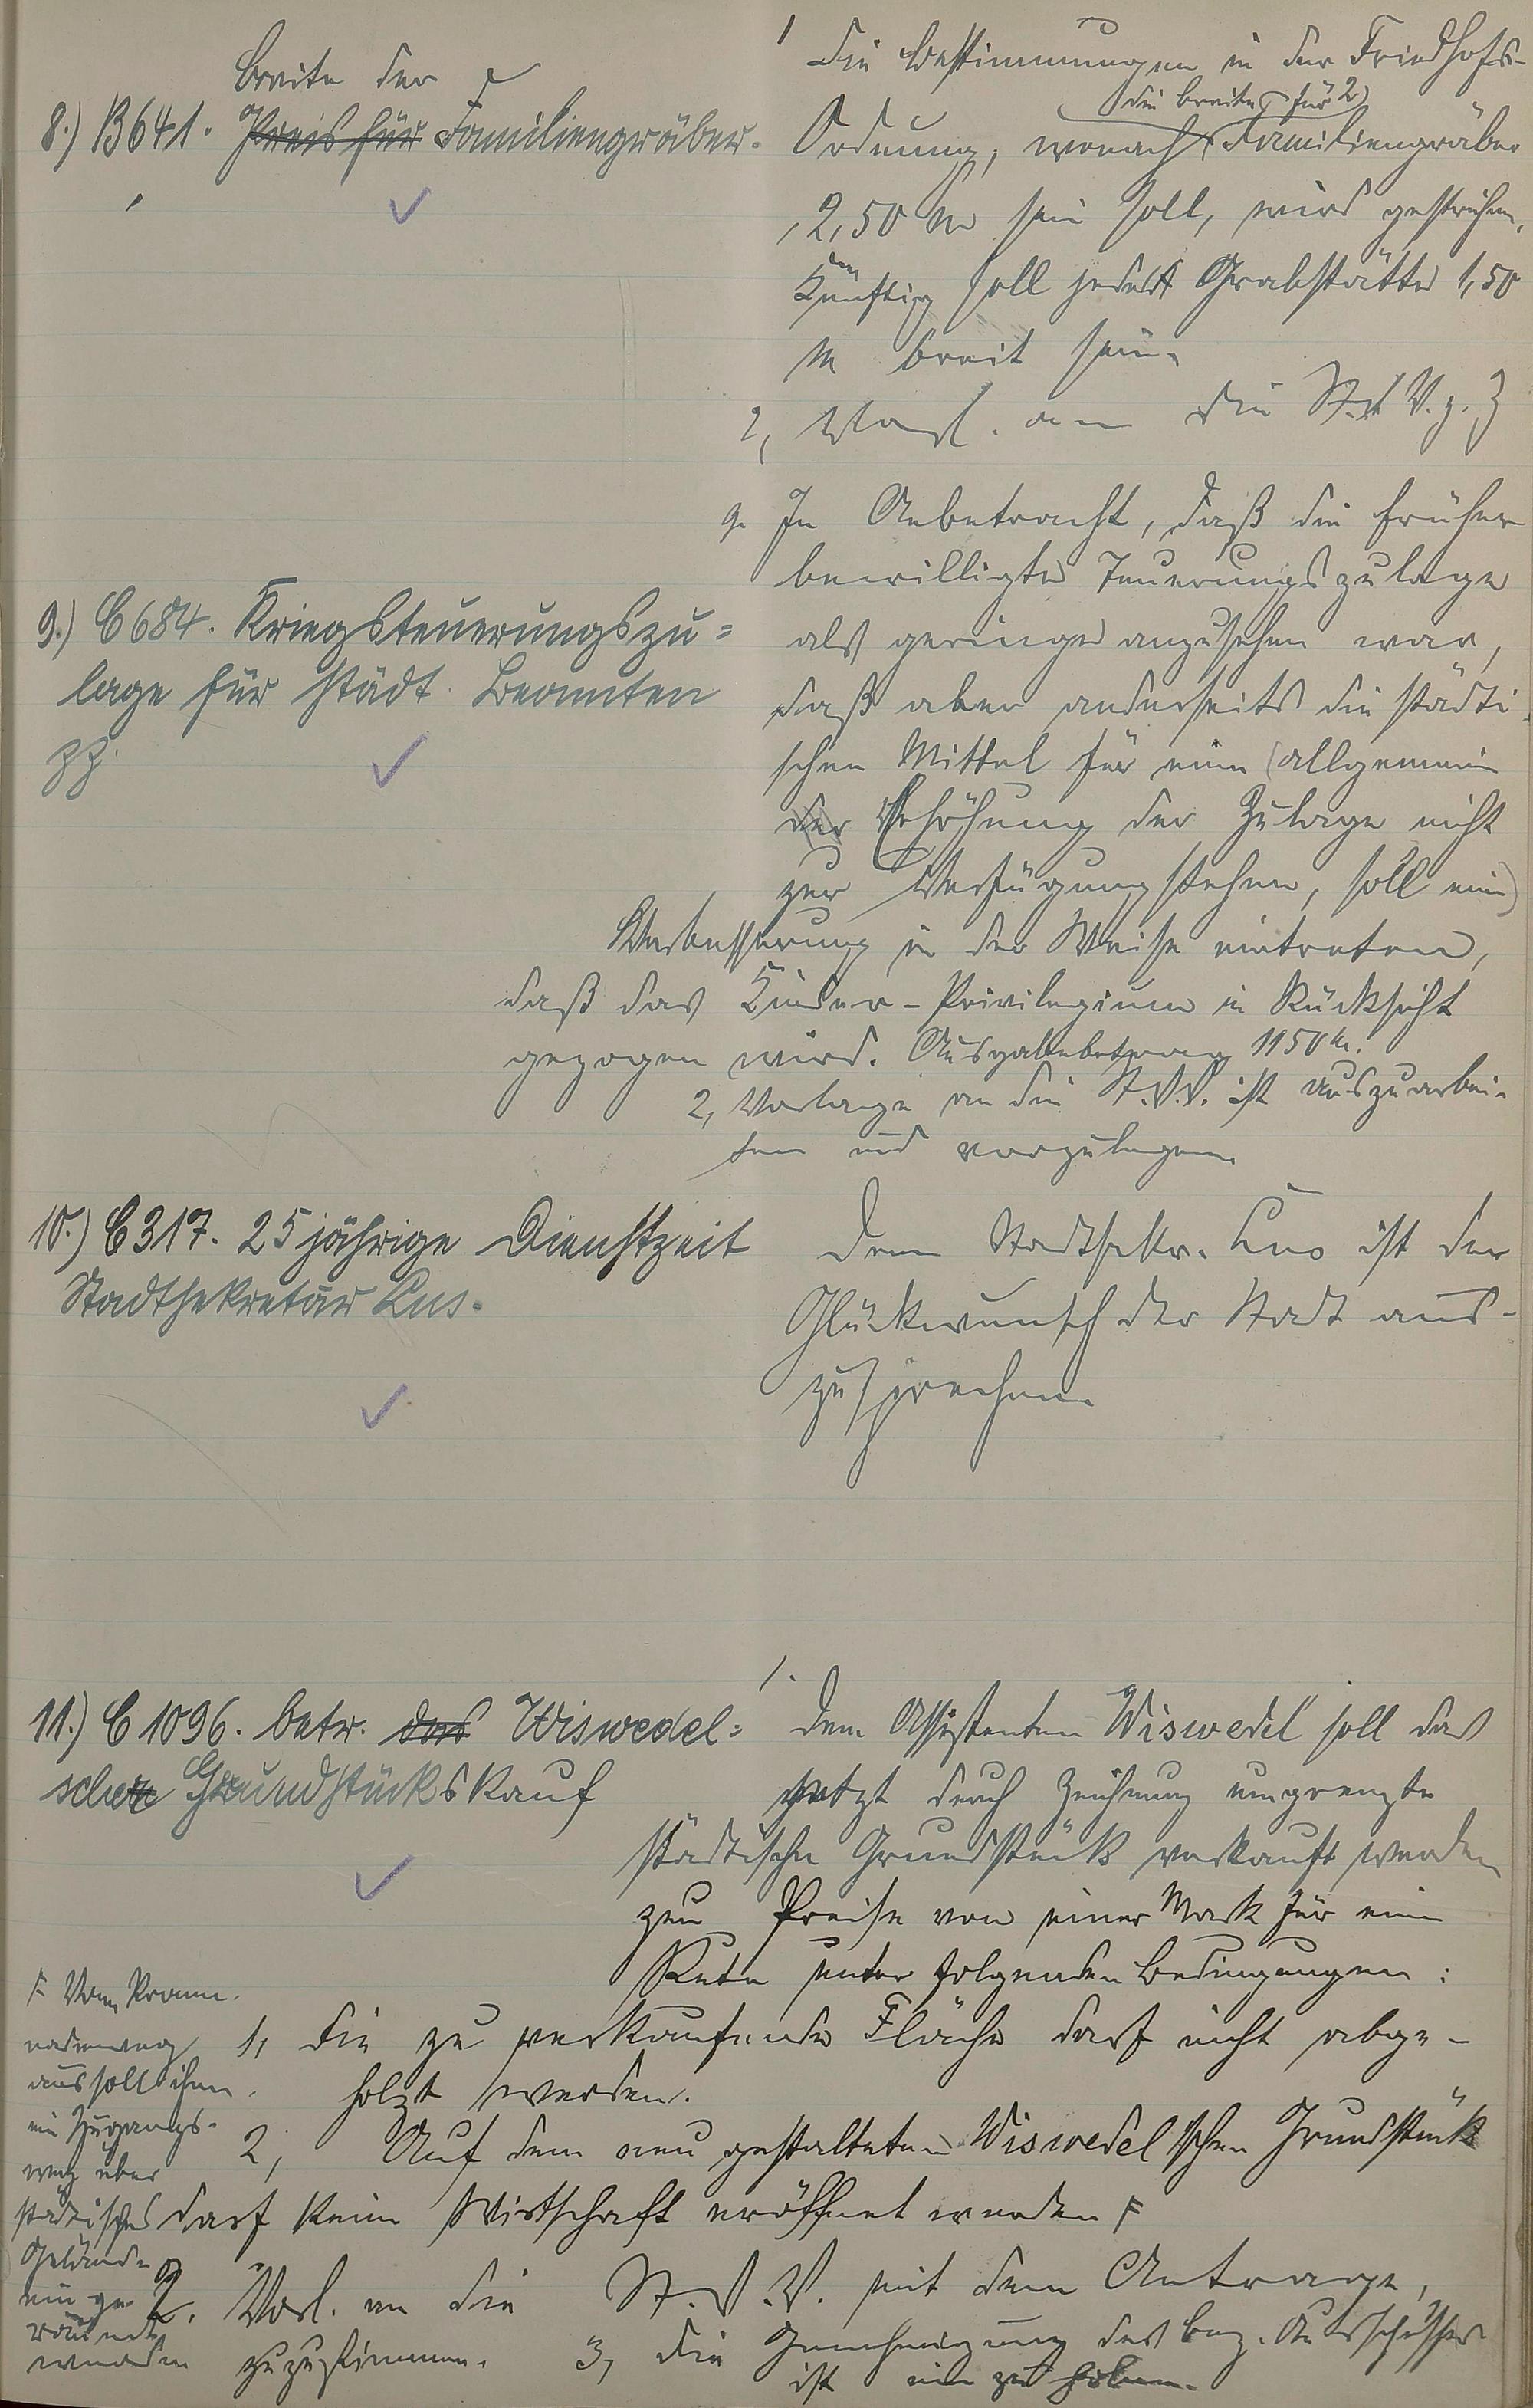 Breite der
8.) B641. Preis für Familiengräber.
1 Die Bestimmungen in der Friedhofs-
die Breite für 2
Ordnung, wonach Familiengräber
2,50 m sein soll, wird gestrichen,
Künftig soll jede Grabstätte 1,50
m breit sein.
2, Vorl. an die St. V. z. Z
9.) C684. Kriegsteuerungszu=
lage für städt. Beamten
pp.
9. In Anbetracht, daß die früher
bewilligte Teuerungszulage
als geringe anzusehen war,
daß aber anderseits die städti-
schen Mittel für eine allgemein
der Erhöhung der Zulage nicht
zur Verfügung stehen, soll eine
Verbesserung in der Weise eintreten,
daß das Kinder-Privilegium in Rücksicht
gezogen wird. Ausgabebetrag 1150 M.
2, Vorlage an die St.V.V. ist auszuarbei-
ten und vorzulegen.
10.) C317. 25jährige Dienstzeit
Stadtsekretär Cus.
Dem Stadtsekr. Cus ist der
Glückwunsch der Stadt aus-
zusprechen.
11.) C1096. betr. das Wiswedel=
sche Grundstückskauf
1. Dem Assistenten Wiswedel soll das
jetzt durch Zeichnung umgrenzte
städtische Grundstück verkauft werden
zum Preise von einer Mark für eine
Rute unter folgenden Bedingungen:
1, Die zu verkaufende Fläche darf nicht abge-
holzt werden.
2, Auf dem neu gestalteten Wiswedel'schen Grundstück
darf keine Wirtschaft eröffnet werden F
F Vom Prome-
nadenweg
aus soll ihm
ein Zugangs-
weg über
städtisches
Gelände
einge-
räumt
werden
2. Vorl. an die St.V.V. mit dem Antrage,
zuzustimmen. 3, Die Genehmigung des Bez. Ausschusses
ist ein zu holen.